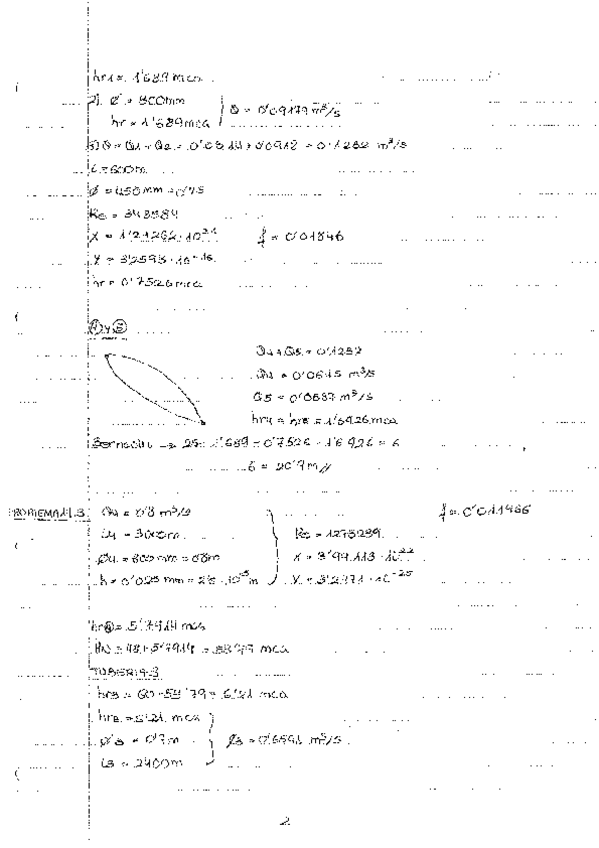 hr1 = 1'689 mca
2). Ø = 300mm
hr = 1'689 mca
Q = 0'09179 m³/s
3) Q = Q1 + Q2 = 0'0314 + 0'0918 = 0'1232 m³/s
L = 600m
Ø = 450 mm = 0'45
Re = 348584
X = 1'21262·10²¹ f = 0'01546
Y = 3'2593·10⁻¹⁶
hr = 0'7526 mca
④ y ⑤
Q4 + Q5 = 0'1232
Q4 = 0'0645 m³/s
Q5 = 0'0587 m³/s
hr4 = hr5 = 1'6926 mca
Bernoulli → 25 - 1'689 - 0'7526 - 1'6926 = 6
6 = 20'9 m
PROBLEMA 11.3 Q4 = 0'8 m³/s f = 0'011486
L4 = 3000m Re = 1273239
Ø4 = 800 mm = 0'8m X = 3'99113·10²²
h = 0'025 mm = 2'5·10⁻⁵ m Y = 3'2371·10⁻²⁵
hr④ = 5'7914 mca
= 53'79 mca
TUBERIA 3
hr3 = 60 - 53'79 = 6'21 mca
hr3 = 6'21 mca
Ø3 = 0'7m Q3 = 0'6591 m³/s
L3 = 2400m
2